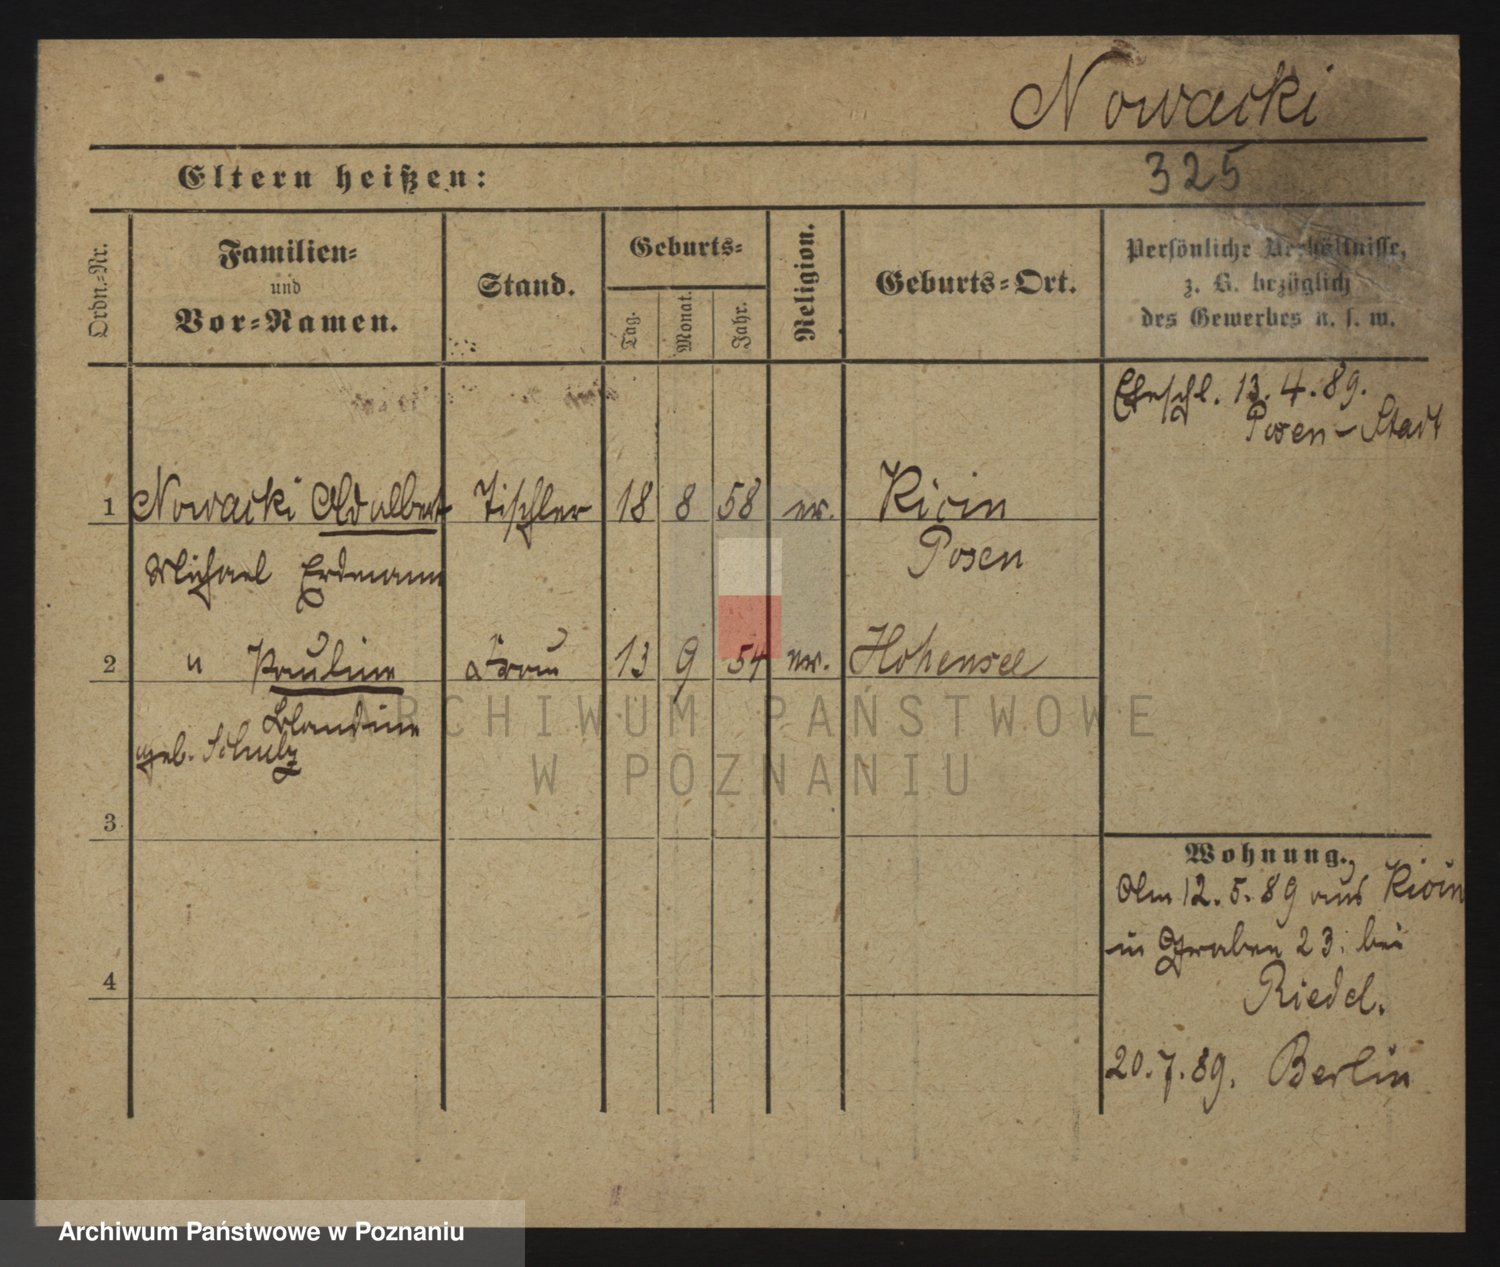 Nowacki
Eltern heißen:
325
Ordn.-Nr.
Familien-
und
Vor-Namen.
Stand.
Geburts-
Tag.
Monat.
Jahr.
Religion.
Geburts-Ort.
Persönliche Verhältnisse,
z. B. bezüglich
des Gewerbes u. s. w.
Eheschl. 13.4.89.
Posen-Stadt
1 Nowacki Adalbert Tischler 18 8 58 ev. Kicin
Posen
Michael Erdmann
2 " Pauline Frau 13 9 54 ev. Hohensee
Blandine
geb. Schulz
3
Wohnung.
Am 12.5.89 aus Kicin
in Graben 23. bei
Riedel.
4
20.7.89. Berlin
ARCHIWUM PAŃSTWOWE
W POZNANIU
Archiwum Państwowe w Poznaniu